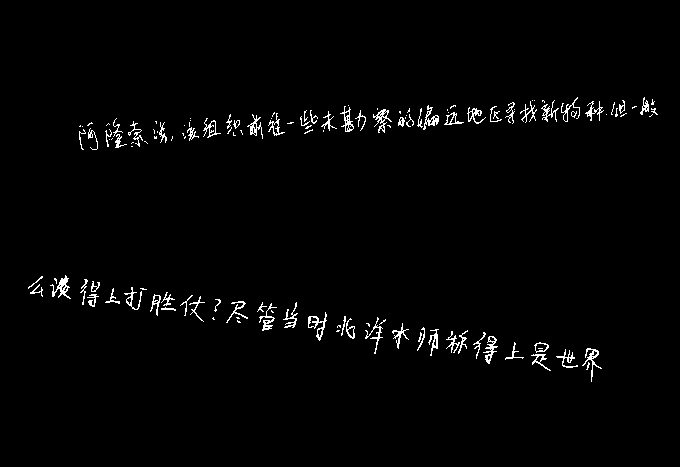 阿隆索说,该组织前往一些未勘察的偏远地区寻找新物种.但一般
么谈得上打胜仗?尽管当时北洋水师称得上是世界